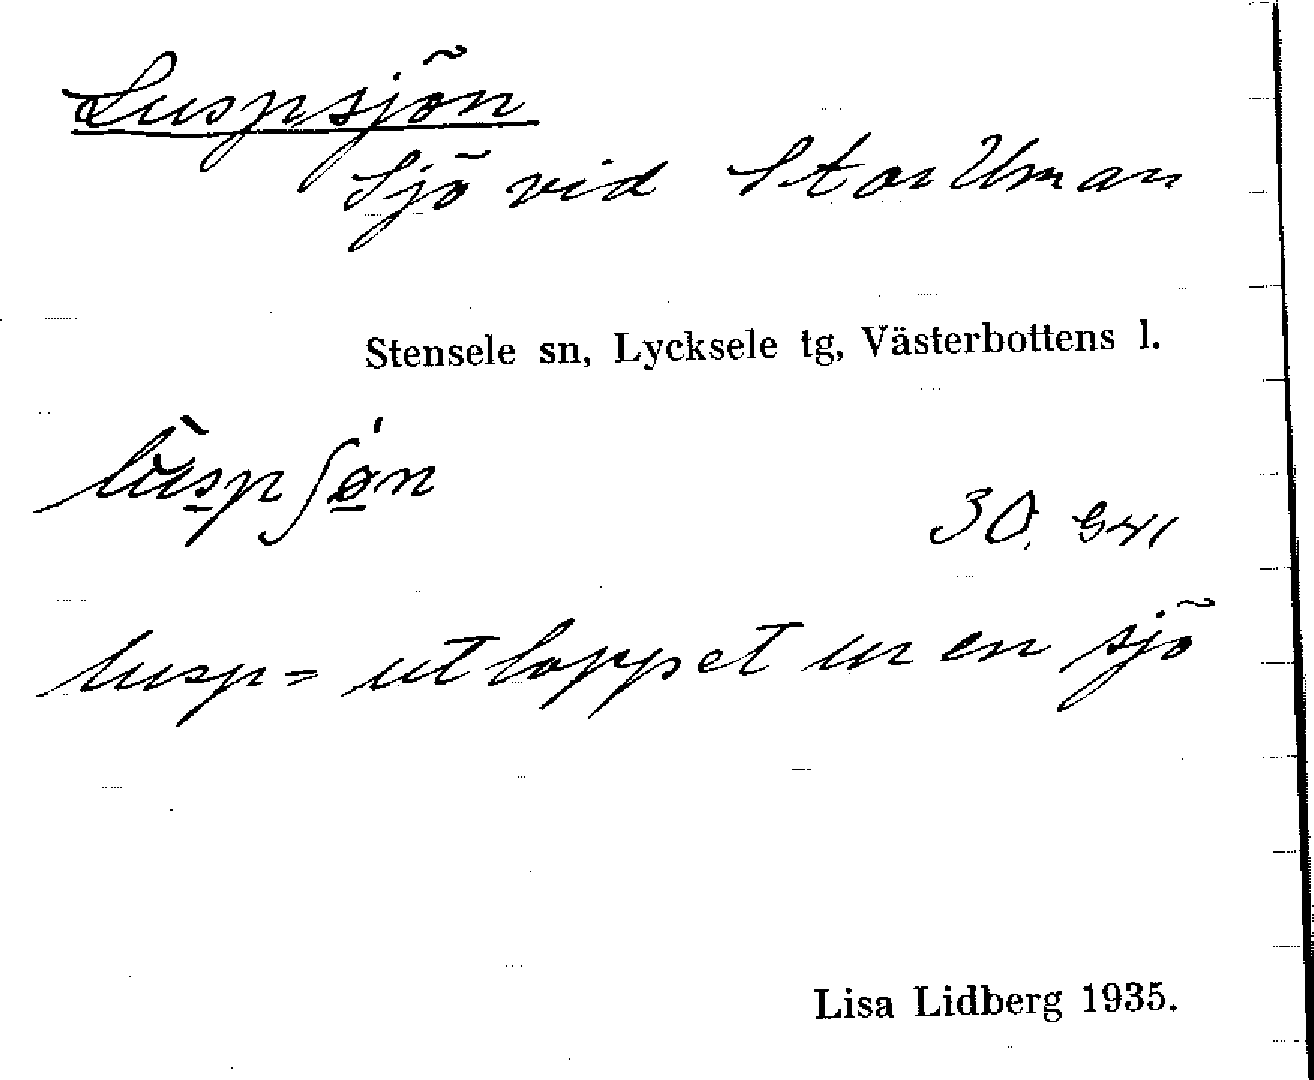 Luspsjön
Sjö vid Stor Uman
Stensele sn, Lycksele tg, Västerbottens l.
30.
lusp = utloppet ur en sjö
Lisa Lidberg 1935.